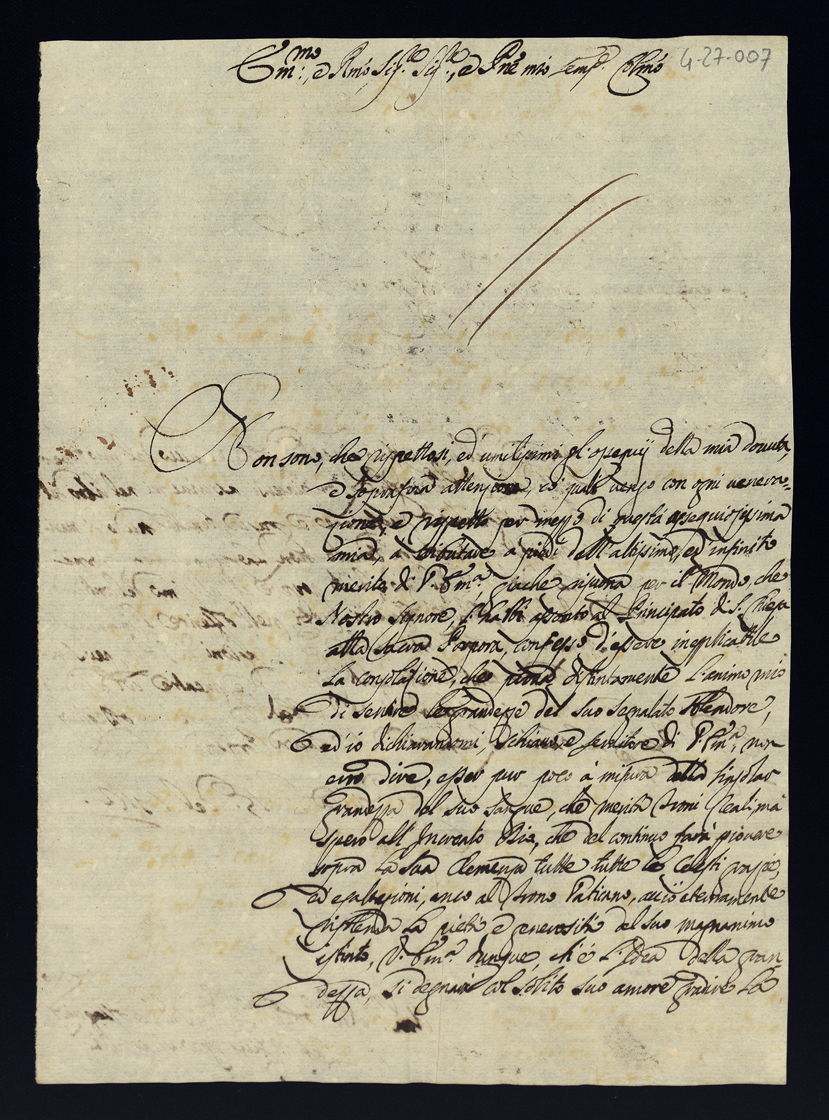 Em.mo, e Rmo Sig.re Sig.re, e Pne mio Semp. Colmo
4-27-007
Non sono, che rispettosi, ed umilissimi gl'ossequij della mia douuta,
e soprafina attenzione, coi quali vengo con ogni venera-
zione, e rispetto per mezzo di questa ossequiosissima
mia, a tributare a piedi dell'altissimo, ed infinito
merito di V. Em.a, giache risuona per il Mondo, che
Nostro Signore, l'habbi al Principato di S. Chiesa
alla Sacra Porpora, confesso d'essere inesplicabile
la consolatione, che distintamente l'animo mio
di sentire le grandezze del suo segnalato splendore,
ed io dichiarandomi, schiavo, e servitore di V. Em.a, non
dire, esser pur poco à misura della singolar
grandezza del suo sangue, che merita troni Reali, mà
spero all'Increato Dio, che del continuo farà piouere
sopra la sua Clemenza tutte tutte le Celesti grazie,
ed esaltazioni, anco al trono Vaticano, acciò eternamente
risplenda la pietà e generosità del suo magnanimo
istinto, V. Em.a dunque, ch'é l'Idea della gran
dezza, si degnarà col solito suo amore gradire la